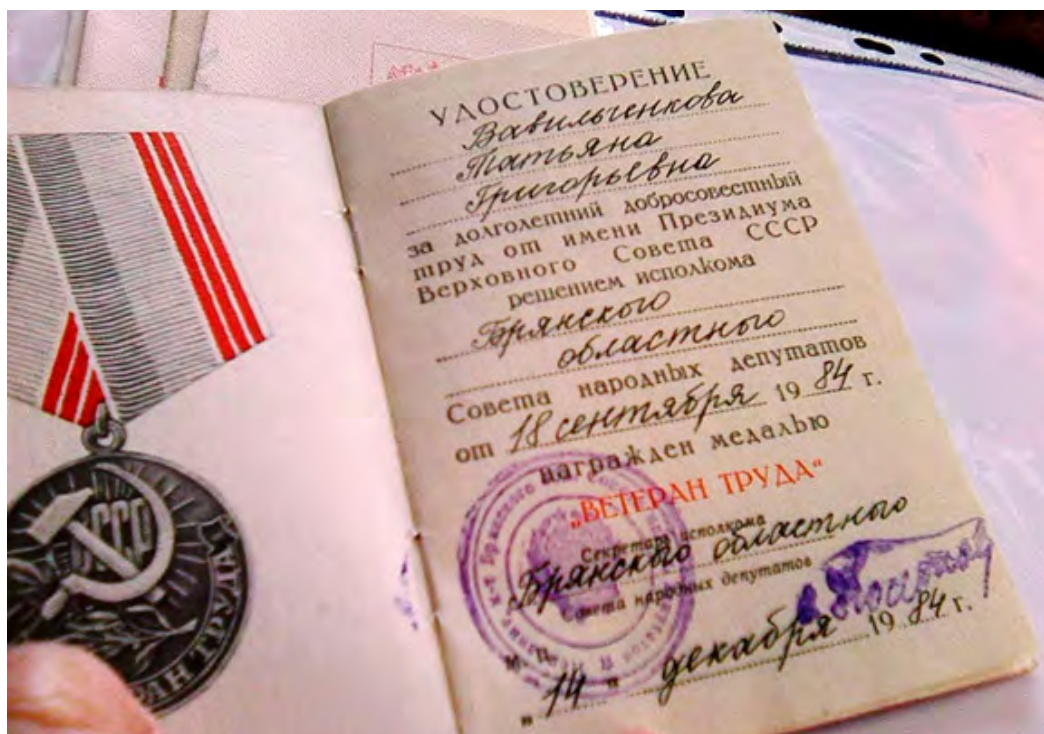 СССР
ВЕТЕРАН ТРУДА
УДОСТОВЕРЕНИЕ
Вавильченкова
Татьяна
Григорьевна
за долголетний добросовестный
труд от имени Президиума
Верховного Совета СССР
решением исполкома
Брянского
областного
Совета народных депутатов
от 18 сентября 1984 г.
награжден медалью
„ВЕТЕРАН ТРУДА“
Секретарь исполкома
Брянского областного
Совета народных депутатов
М. П.
„ 14 “ декабря 1984 г.